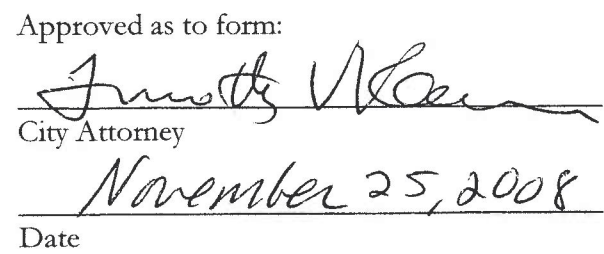 Approved as to form:
Timothy
City Attorney
November 25, 2008
Date